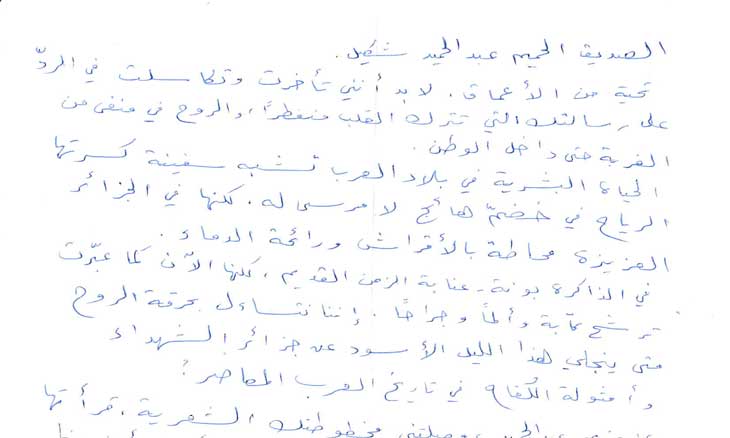 الصديق الحميم عبد الحميد شكيل.
تحية من الأعماق. لا بد أنني تأخرت وتكاسلت في الردّ
على رسالتك التي تترك القلب منفطراً، والروح في منفى من
الغربة حتى داخل الوطن.
الحياة البشرية في بلاد العرب تشبه سفينة كسرتها
الرياح في خضمّ هائج لا مرسى له. لكنها في الجزائر
العزيزة محاطة بالأقراش ورائحة الدماء.
في الذاكرة بونة - عنابة الزمن القديم، لكنها الآن كما عبّرت
ترشح كآبة وألماً وجراحاً. إننا نتساءل بحرقة الروح
متى ينجلي هذا الليل الأسود عن جزائر الشهداء
وأمثولة الكفاح في تاريخ العرب المعاصر؟
وصلتني مخطوطتك الشعرية، قرأتها